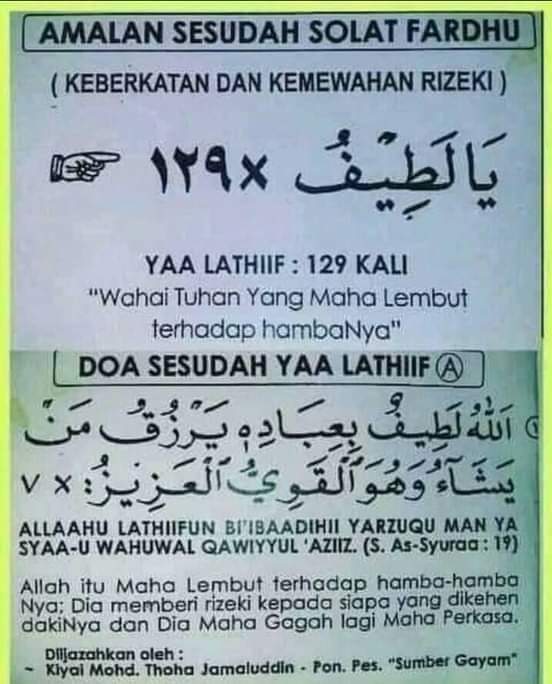 AMALAN SESUDAH SOLAT FARDHU
( KEBERKATAN DAN KEMEWAHAN RIZEKI )
يَا لَطِيْفُ ×١٢٩
YAA LATHIIF : 129 KALI
"Wahai Tuhan Yang Maha Lembut
terhadap hambaNya"
DOA SESUDAH YAA LATHIIF Ⓐ
اَللهُ لَطِيْفٌ بِعِبَادِهٖ يَرْزُقُ مَنْ
يَشَآءُ وَهُوَ الْقَوِيُّ الْعَزِيْزُ: × ٧
ALLAAHU LATHIIFUN BI'IBAADIHII YARZUQU MAN YA
SYAA-U WAHUWAL QAWIYYUL 'AZIIZ. (S. As-Syuraa : 19)
Allah itu Maha Lembut terhadap hamba-hamba
Nya; Dia memberi rizeki kepada siapa yang dikehen
dakiNya dan Dia Maha Gagah lagi Maha Perkasa.
Diijazahkan oleh :
~ Kiyai Mohd. Thoha Jamaluddin - Pon. Pes. "Sumber Gayam"